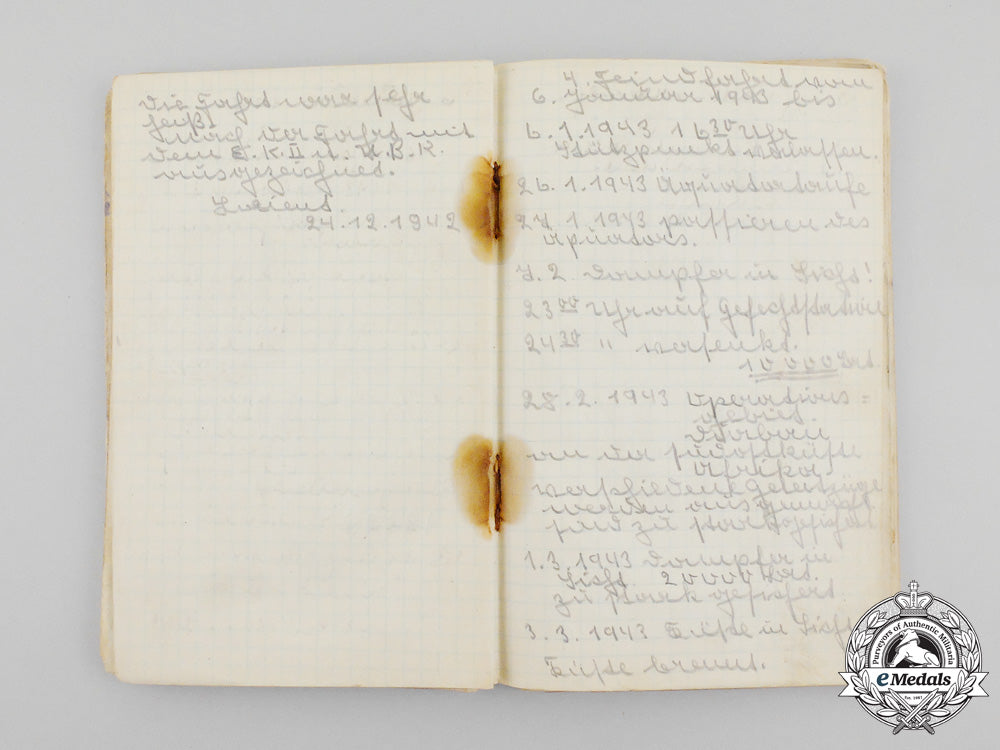 Die Fahrt war sehr
heiß!
Nach der Fahrt mit
dem E.K.II u. U.B.K.
ausgezeichnet.
Lorient.
24.12.1942
4. Feindfahrt vom
6. Januar 1943 bis
6.1.1943 16 30 Uhr
Stützpunkt verlassen.
26.1.1943 Äquatortaufe
27.1.1943 passieren des
Äquators.
7.2. Dampfer in Sicht!
23 00 Uhr auf Gefechtsstation
24 30 " versenkt.
10000 Brt
28.2.1943 Operations=
gebiet.
Durban
an der Südostküste
Afrika
verschiedene Geleitzüge
werden ausgemacht
sind zu stark gesichert
1.3.1943 Dampfer in
Sicht 20000 Brt.
zu stark gesichert
3.3.1943 Küste in Sicht
Küste brennt.
Purveyors of Authentic Militaria
eMedals
Est. 1987